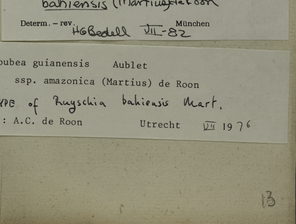 bahiensis (Martius) de Roon
Determ. - rev. München
HGBedell VII-82
oubea guianensis Aublet
ssp. amazonica (Martius) de Roon
of Ruyschia bahiensis Mart.
: A.C. de Roon Utrecht VII 1976
13